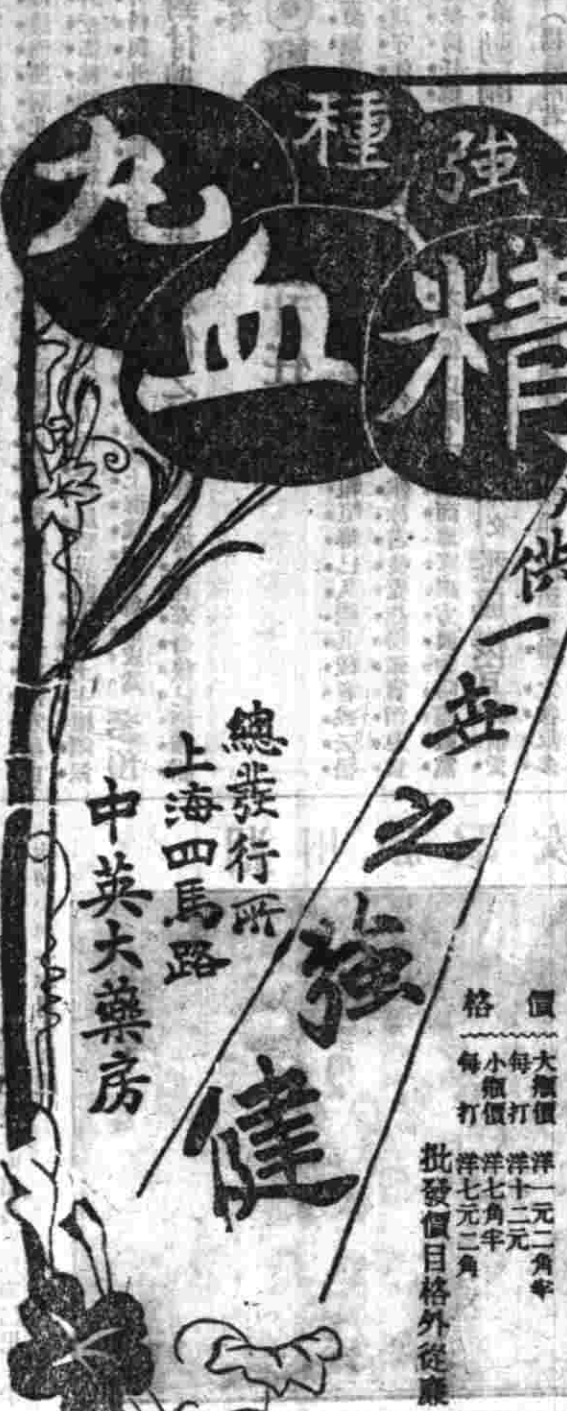 強種
精血丸
供一世之強健
價格
大瓶價 洋一元二角半
每打 洋十二元
小瓶價 洋七角半
每打 洋七元二角
批發價目格外從廉
總發行所
上海四馬路
中英大藥房